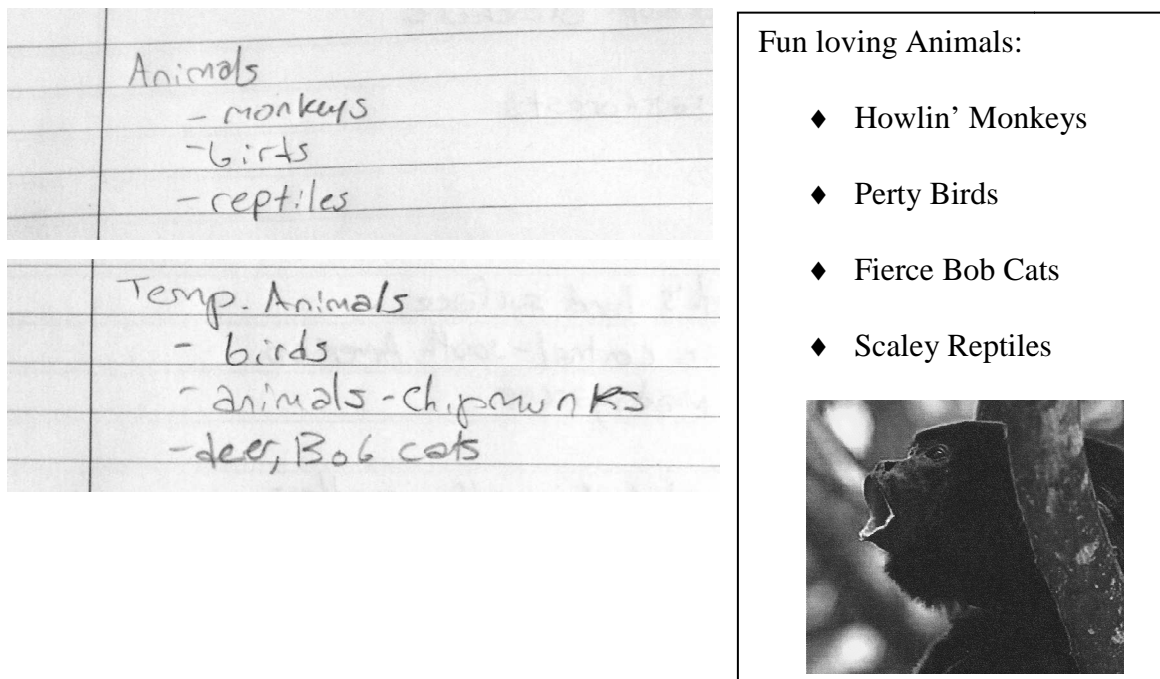 Animals
- monkeys
- birds
- reptiles
Temp. Animals
- birds
- animals - chipmunks
- deer, Bob cats
Fun loving Animals:
♦ Howlin' Monkeys
♦ Perty Birds
♦ Fierce Bob Cats
♦ Scaley Reptiles